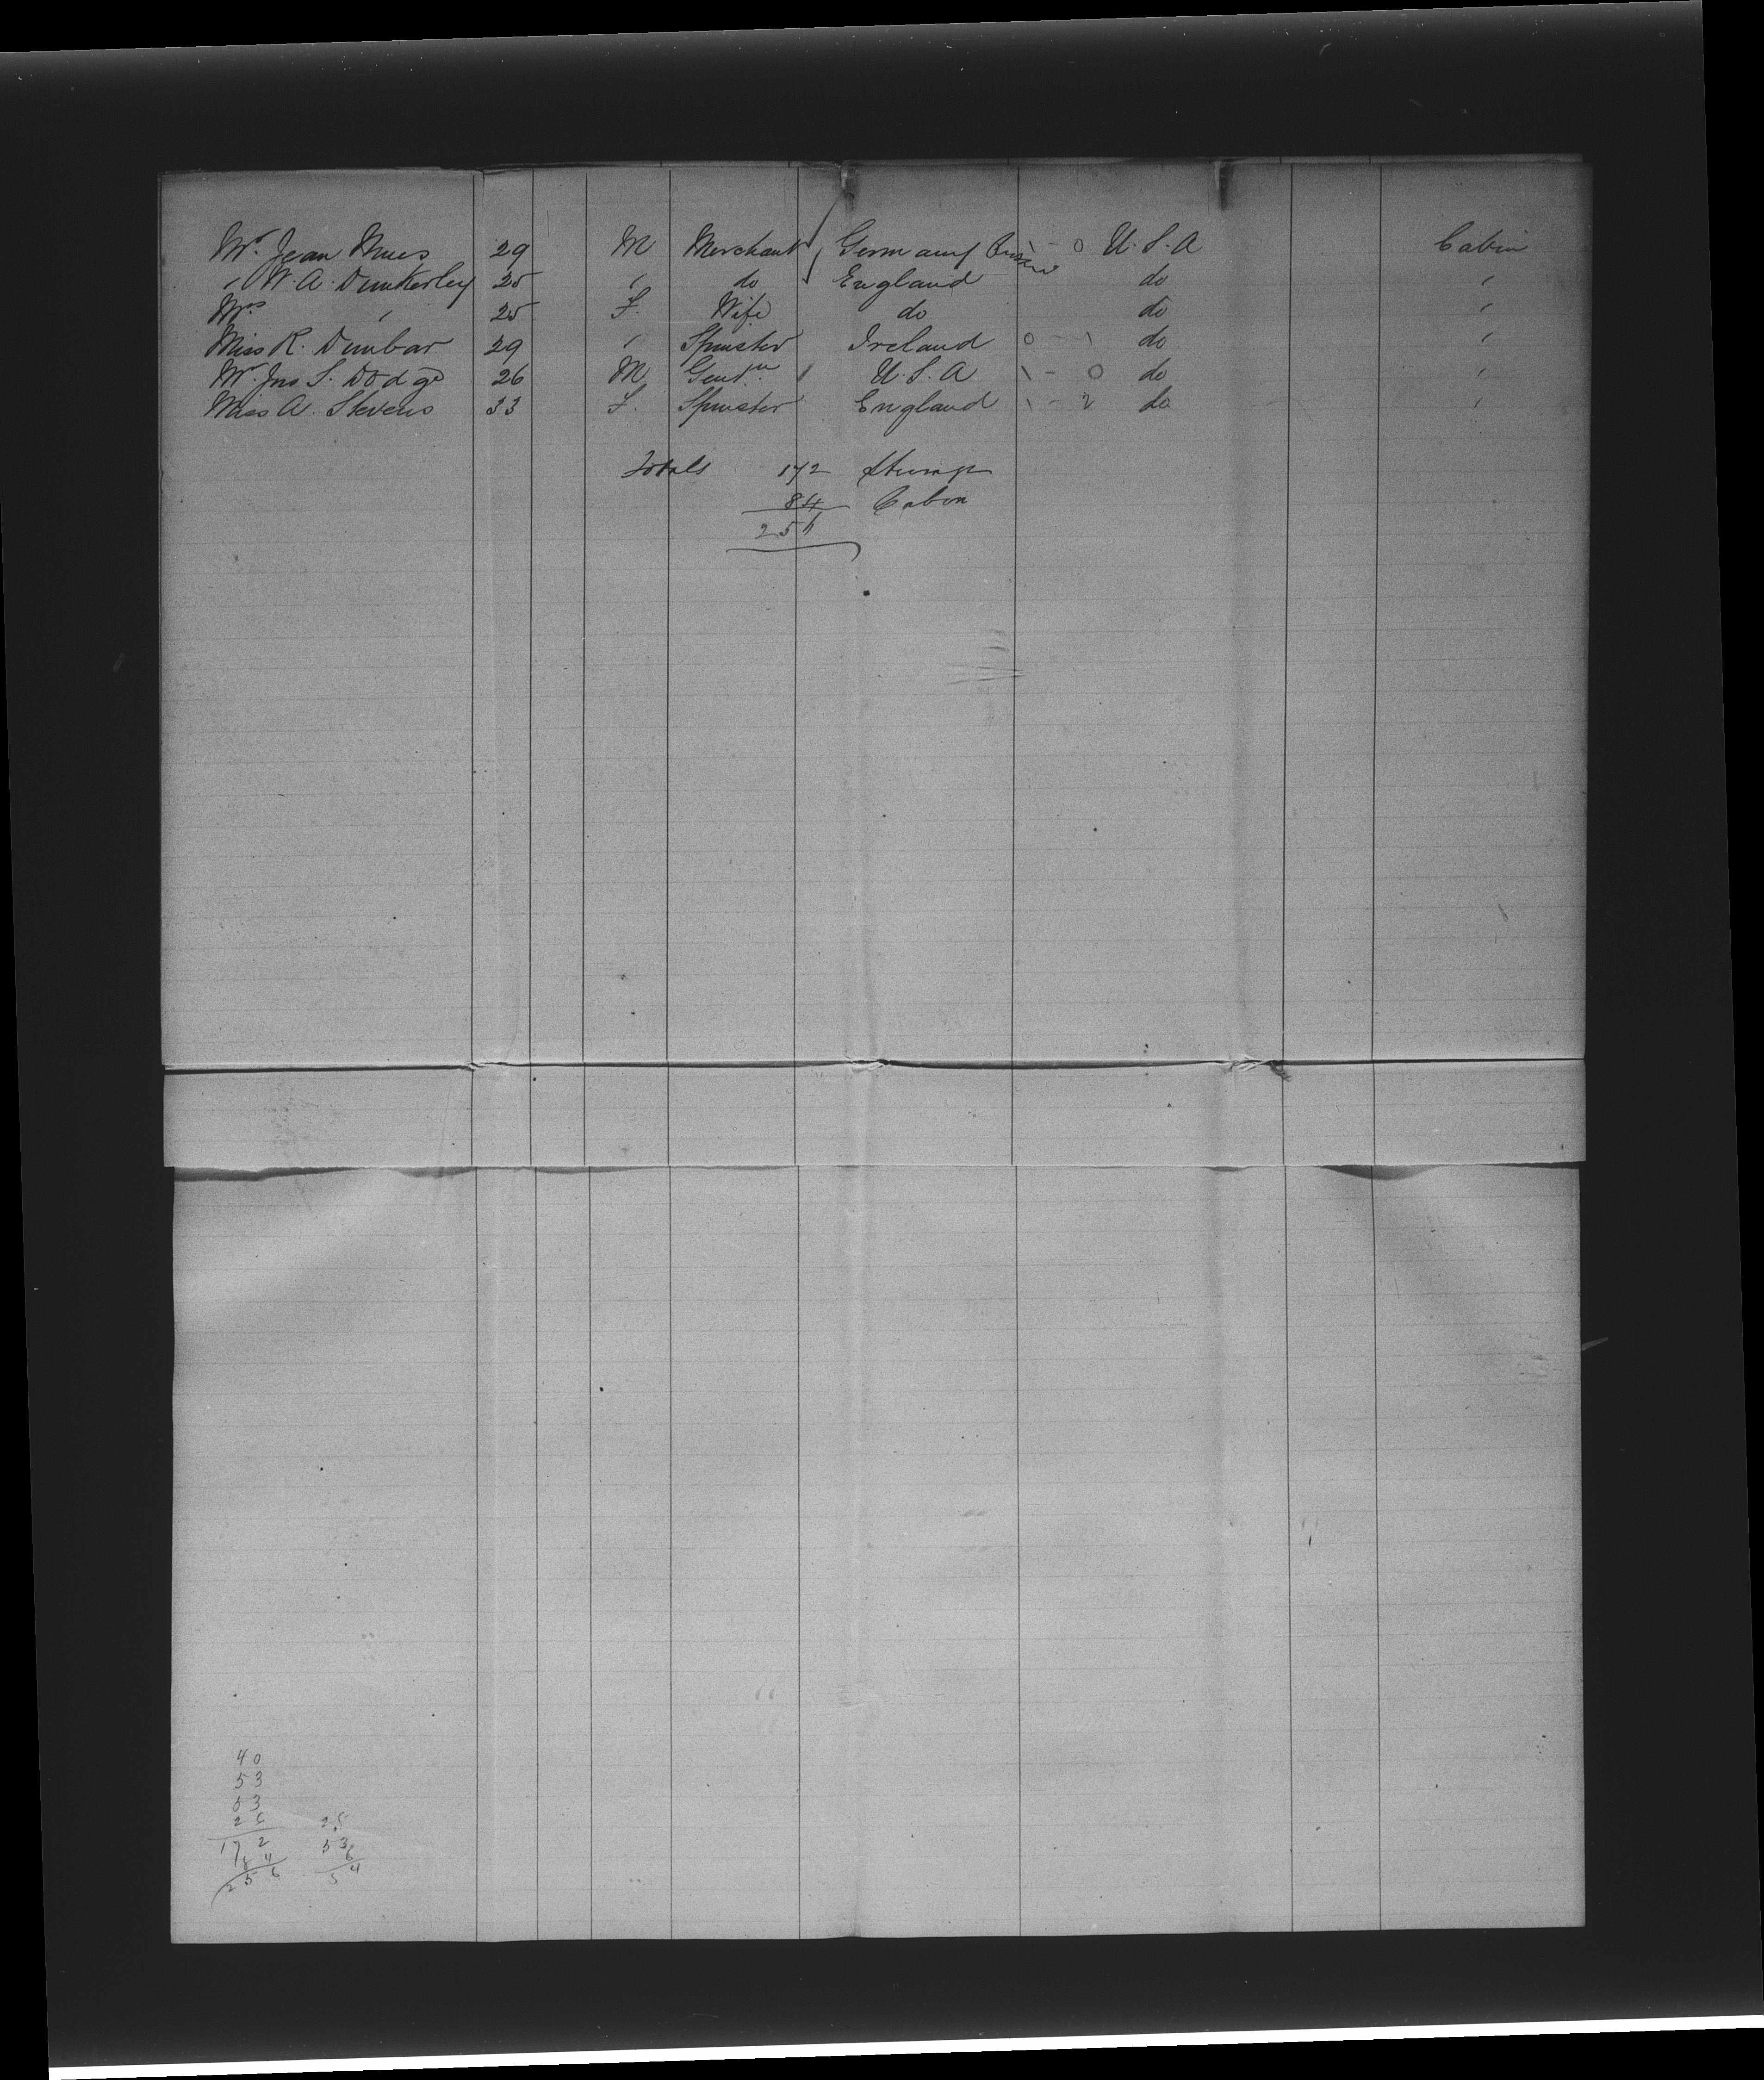 Mr. Jean Mues 29 M Merchant Germany 1 - 0 U.S.A Cabin
" W. A. Dunkerley 25 " do England do "
Mrs " 25 F. Wife do do "
Miss R. Dunbar 29 " Spinster Ireland 0 - 1 do "
Mr. Jno S. Dodge 26 M Gentn U.S.A 1 - 0 do "
Miss A. Stevens 33 F. Spinster England 1 - 2 do "
Totals 172 Steerage
84 Cabin
256
40
53
53
26
172
84
256
25
53
6